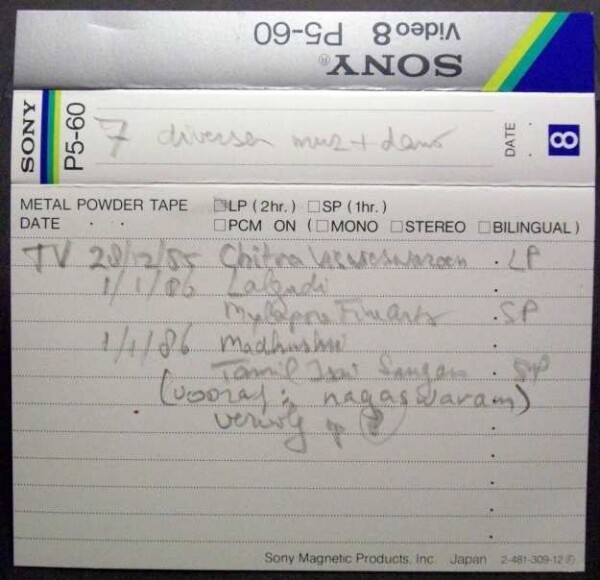 Video 8 P5-60
SONY®
SONY
P5-60
7 diversen muz + dans
DATE
8
METAL POWDER TAPE □LP (2hr.) □SP (1hr.)
DATE . . □PCM ON (□MONO □STEREO □BILINGUAL)
TV 28/12/85 Chitra Visweswaran . LP
1/1/86 Lalgudi
Mylapore Finearts . SP
1/1/86 Madhushri
Tamil Isai Sangam . SP
(vooraf: nagaswaram)
vervolg op
Sony Magnetic Products, Inc. Japan 2-481-309-12